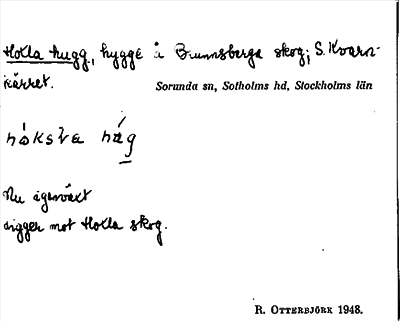 Hoxla hugg, hygge å Brunnsberga skog; S. Kvarn-
kärret.
Sorunda sn, Sotholms hd, Stockholms län
Nu igenväxt
ligger mot Hoxla skog.
R. OTTERBJÖRK 1948.